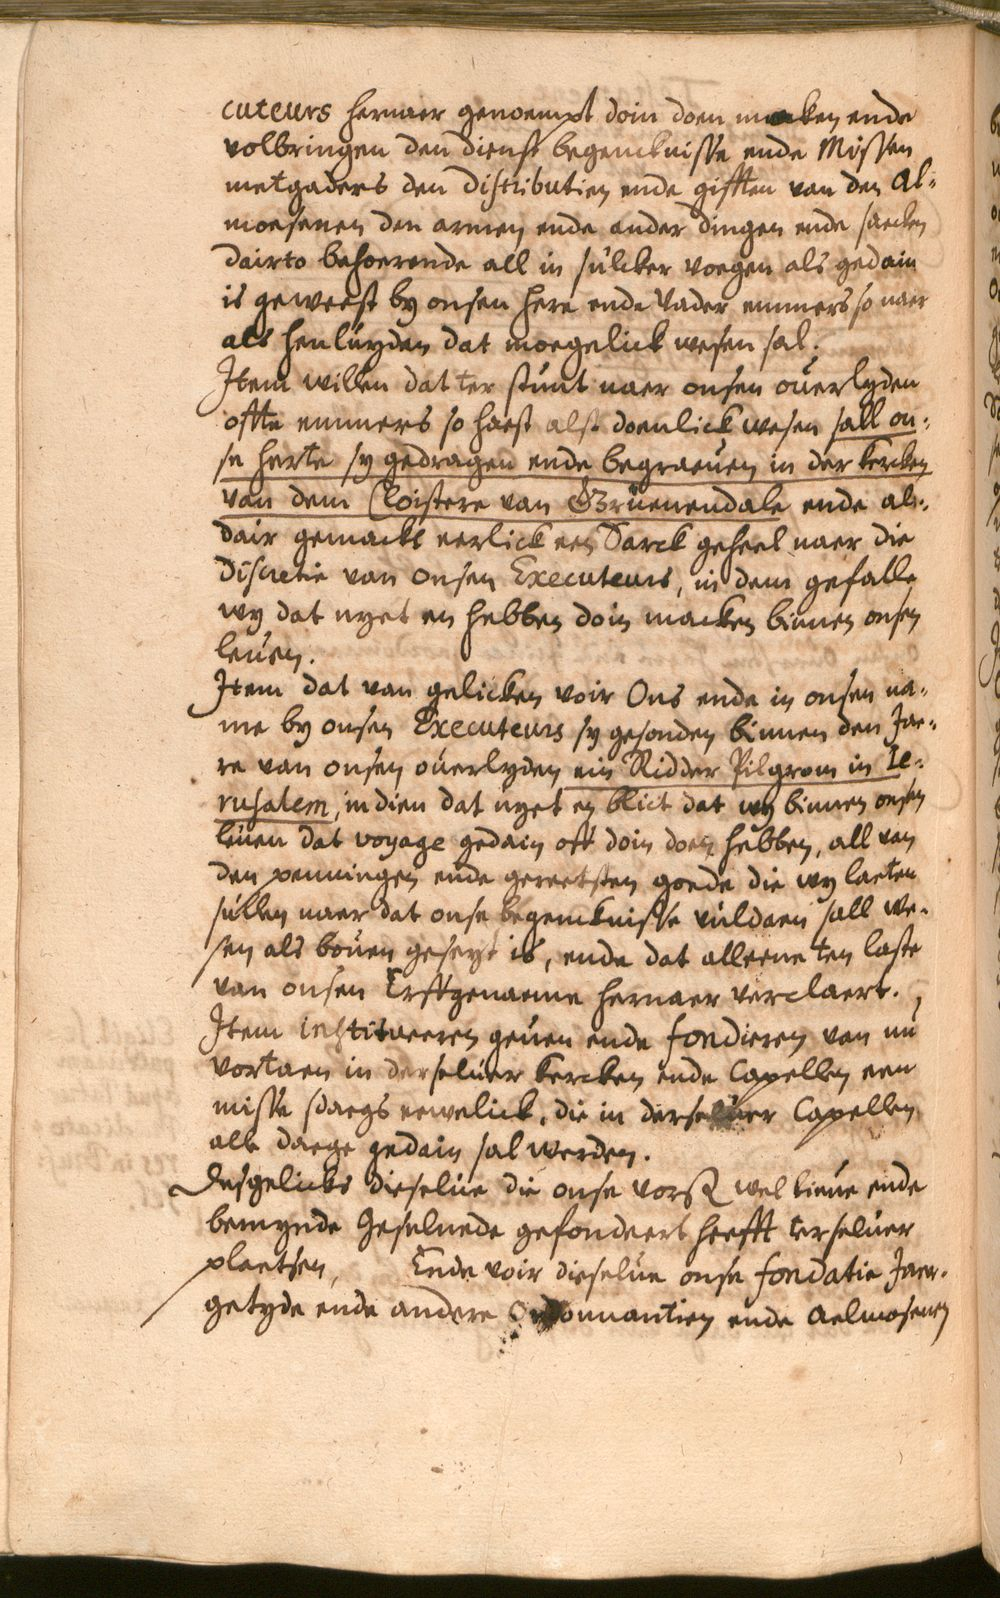 cuteurs hernaer genoempt doin doen maeken ende
volbringen den dienst begencknisse ende Missen
metgaders den distributien ende gifften van den Al-
moesenen den armen ende ander dingen ende saecken
dairto behoerende all in sulcker voegen als gedain
is geweest by onsen here ende Vader emmers so naer
als henluyden dat moegelick wesen sal.
Item willen dat ter stunt naer onsen ouerlyden
offte emmers so haest alst doenlick wesen sall on-
se herte sy gedragen ende begraeuen in der kercken
van dem Cloistere van Gruenendale ende al-
dair gemackt eerlick een Sarck geheel naer die
discretie van onsen Executeurs, in dem gefalle
wy dat nyet en hebben doin macken binnen onsen
leuen.
Item dat van gelicken voir Ons ende in onsen na-
me by onsen Executeurs sy gesonden binnen den Jae-
re van onsen ouerlyden ein Ridder Pilgrom in Ie-
rusalem, indien dat nyet en blict dat wy binnen onsen
leuen dat voyage gedain oft doin doen hebben, all van
den penningen ende gereetsten goede die wy laeten
sullen naer dat onse begencknisse vuldaen sall we-
sen als bouen geseyt is, ende dat alleene ten laste
van onsen Erffgenaeme hernaer verclaert.
Item institueeren geuen ende fondieren van nu
vortaen in derseluer kercken ende Capellen een
misse sdaegs eewelick, die in derseluer Capellen
alle daege gedain sal werden.
Desgelicks dieselue die onse vorß wel lieue ende
bemynde Geselnede gefondeert heefft terseluer
plaetsen, Ende voir dieselue onse fondatie Jaer-
getyde ende andere Ordonnantien ende Aelmosenen